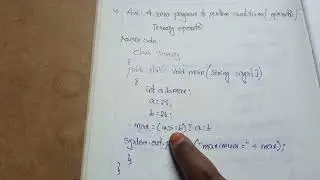 Aim: A Java program to perform conditional operator/
Ternary operator
Source code:
Class Ternary
{ public static void main(String args[])
{
int a,b,max;
a=25;
b=26;
max=(a>=b)?a:b
System.out. ("maximum =" + max);
}
}